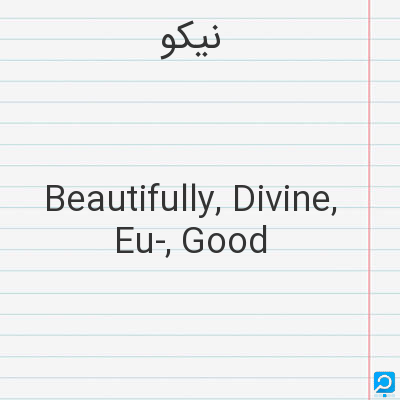 نیکو
Beautifully, Divine,
Eu-, Good